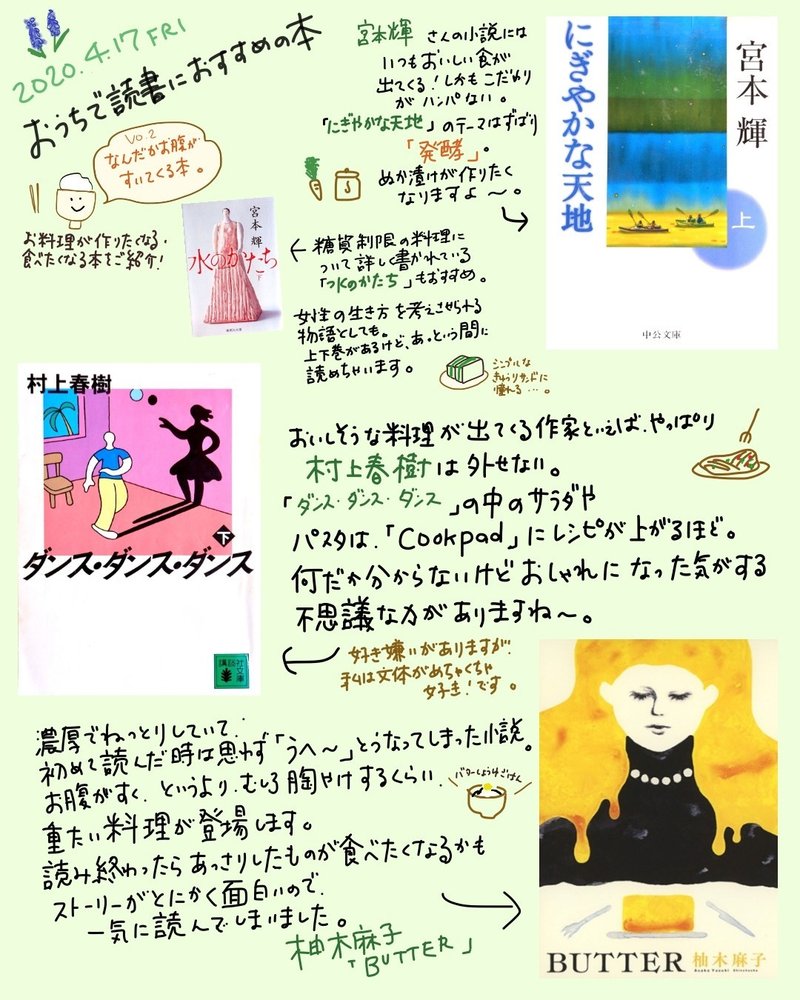 2020.4.17 FRI
おうちで読書におすすめの本
Vo.2
なんだかお腹が
すいてくる本。
お料理が作りたくなる・
食べたくなる本をご紹介！
宮本輝 さんの小説には
いつもおいしい食が
出てくる！しかもこだわり
がハンパない。
「にぎやかな天地」のテーマはずばり
「発酵」。
ぬか漬けが作りたく
なりますよ〜。
宮本 輝
にぎやかな天地
上
中公文庫
宮本 輝
水のかたち
下
糖質制限の料理に
ついて詳しく書かれている
「水のかたち」もおすすめ。
女性の生き方を考えさせられる
物語としても。
上下巻があるけど、あっという間に
読めちゃいます。
シンプルな
きゅうりサンドに
憧れる…。
村上春樹
ダンス・ダンス・ダンス
下
講談社
文庫
おいしそうな料理が出てくる作家といえば、やっぱり
村上春樹は外せない。
「ダンス・ダンス・ダンス」の中のサラダや
パスタは、「Cookpad」にレシピが上がるほど。
何だか分からないけどおしゃれになった気がする
不思議な力がありますね〜。
好き嫌いがありますが、
私は文体がめちゃくちゃ
好き！です。
濃厚でねっとりしていて、
初めて読んだ時は思わず「うへ〜」とうなってしまった小説。
お腹がすく、というより、むしろ胸やけするくらい、
重たい料理が登場します。
読み終わったらあっさりしたものが食べたくなるかも
ストーリーがとにかく面白いので、
一気に読んでしまいました。
バターしょうゆごはん
柚木麻子
「BUTTER」
BUTTER 柚木麻子